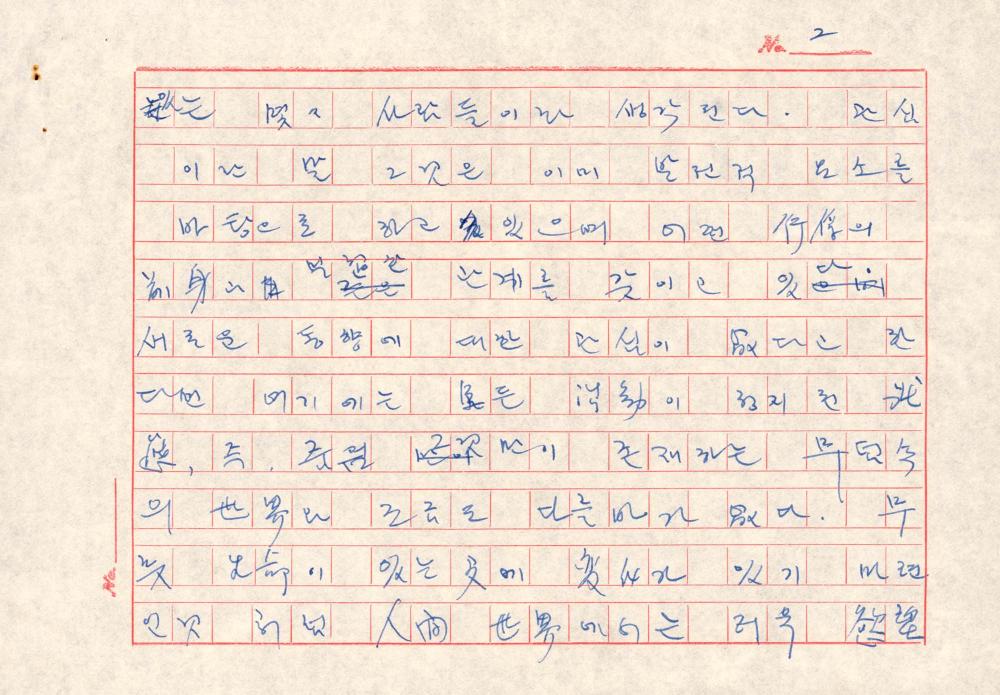 No. 2
는 몇々 사람들이라 생각된다. 관심
이란 말 그것은 이미 발전적 요소를
바탕으로 하고 있으며 어떤 行爲의
前身的 단계를 긋이고 있다.
새로운 동향에 대한 관심이 없다고 한
다면 여기에는 모든 活動이 정지된 狀
態, 즉, 만이 존재하는 무덤속
의 世界와 조금도 다를바가 없다. 무
릇 生命이 있는 곳에 変化가 있기 마련
인것 처럼 人間世界에서는 더욱 慾望
No.